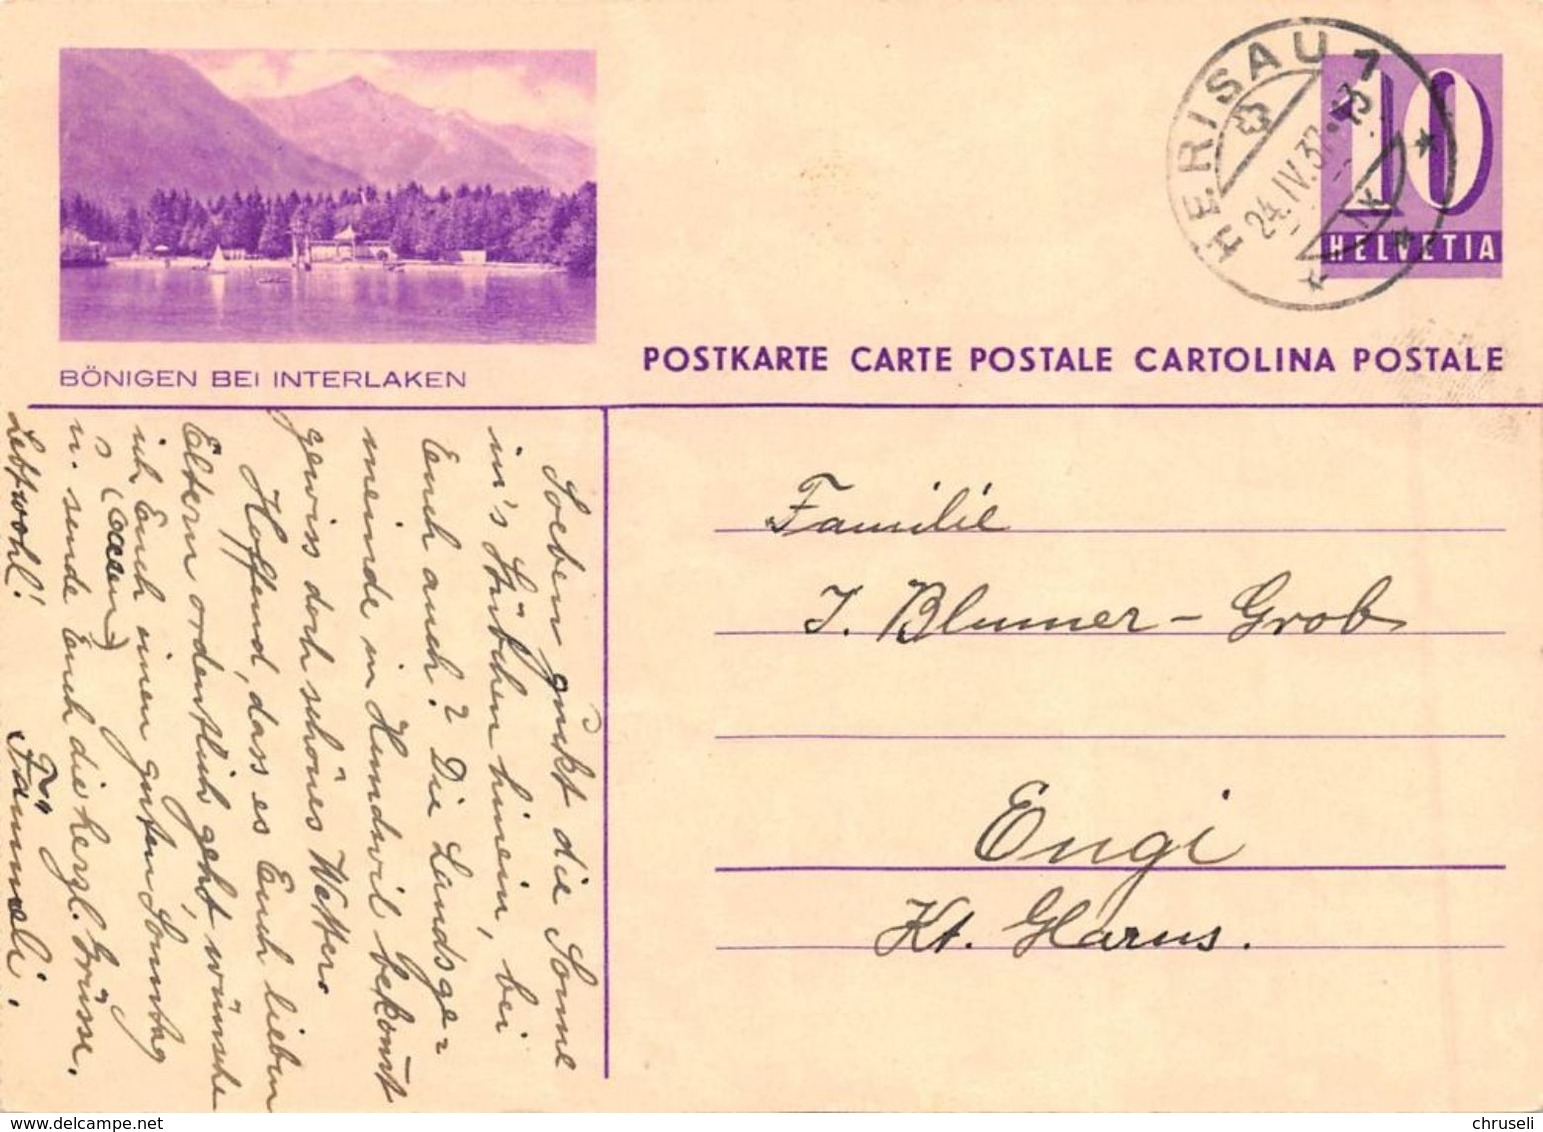 BÖNIGEN BEI INTERLAKEN
HERISAU 1
24.IV.37.
10
HELVETIA
POSTKARTE CARTE POSTALE CARTOLINA POSTALE
Familie
J. Blumer-Grob
Engi
Kt. Glarus.
Soeben guckt die Sonne
in's Stübchen hinein, bei
Euch auch? Die Landsge=
meinde in Hundwil bekomt
gewiss doch schönes Wetter.
Hoffend, dass es Euch lieben
Eltern ordentlich geht, wünsche
ich Euch einen guten Sonntag
u. sende Euch die herzl. Grüsse.
Lebtwohl!
delcampe.net
chruseli